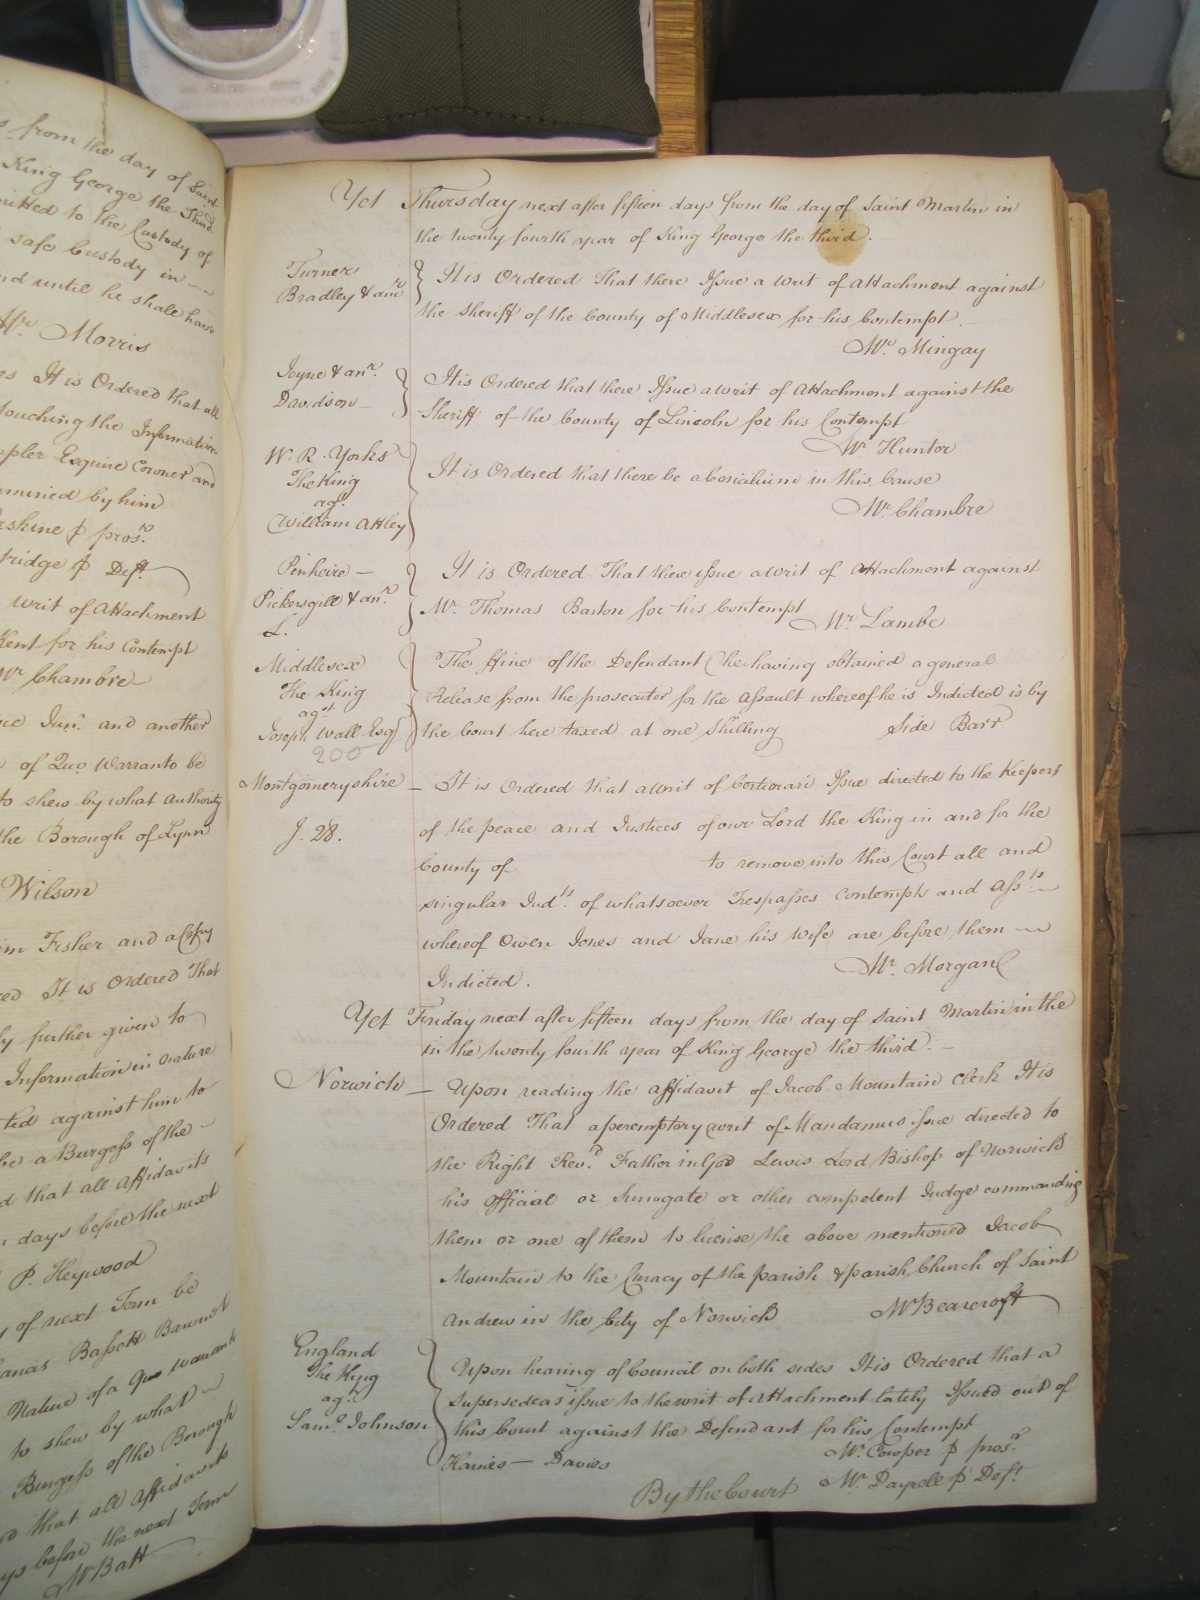 s from the day of Saint
King George the Third
mitted to the Custody of
safe Custody in
nd until he shall have
Mr. Morris
es It is Ordered that all
touching the Information
pler Esquire Coroner and
mined by him
rskine p pros.r
tridge p Deft.
writ of Attachment
Kent for his Contempt
Mr Chambre
Junr. and another
of Quo Warranto be
to shew by what Authority
the Borough of Lynn
Wilson
im Fisher and a Copy
ed It is Ordered That
ly further given to
Information in nature
ted against him to
be a Burgess of the
d that all Affidavits
days before the next
P. Heywood
y of next Term be
Bassett Baronet
Nature of a Quo Warrant
to shew by what
Burgess of the Borough
d that all Affidavits
ys before the next Term
Mr Batt
Yet Thursday next after fifteen days from the day of Saint Martin in
the twenty fourth year of King George the third.
Turner
Bradley & anr.
It is Ordered That there Issue a Writ of Attachment against
the Sheriff of the County of Middlesex for his Contempt.
Mr. Mingay
Joyne & anr.
Davidson
It is Ordered that there Issue a writ of Attachment against the
Sheriff of the County of Lincoln for his Contempt
Mr Hunter
W. R. Yorks
The King
agt.
William Attley
It is Ordered that there be a Concilium in this Cause
Mr. Chambre
Pinheire
Pickersgill & anr.
It is Ordered That there issue a writ of Attachment against
Mr. Thomas Barton for his Contempt Mr. Lambe
L.
Middlesex
The King
agst
Joseph Wall Esq
200
The ffine of the Defendant (he having obtained a general
Release from the prosecutor for the Assault whereof he is Indicted is by
the Court here taxed at one Shilling Side Barr
Montgomeryshire
J. 28.
It is Ordered that a Writ of Certiorari Issue directed to the Keepers
of the peace and Justices of our Lord the King in and for the
County of to remove into this Court all and
singular Indts. of whatsoever Trespasses Contempts and Assts
whereof Owen Jones and Jane his wife are before them
Indicted. Mr. Morgan
Yet Friday next after fifteen days from the day of Saint Martin in the
in the twenty fourth year of King George the third.
Norwich Upon reading the affidavit of Jacob Mountain Clerk It is
Ordered That a peremptory writ of Mandamus issue directed to
the Right Rev.d Father in God Lewis Lord Bishop of Norwich
his official or Surrogate or other competent Judge commanding
them or one of them to license the above mentioned Jacob
Mountain to the Curacy of the parish & parish Church of Saint
Andrew in the City of Norwich Mr Bearcroft
England
The King
agt.
Saml. Johnson
Upon hearing of Council on both sides It is Ordered that a
Supersedeas issue to the writ of Attachment lately Issued out of
this Court against the Defendant for his Contempt
Haines — Davies Mr. Cowper p prosr.
By the Court Mr. Dayrell p Deft.